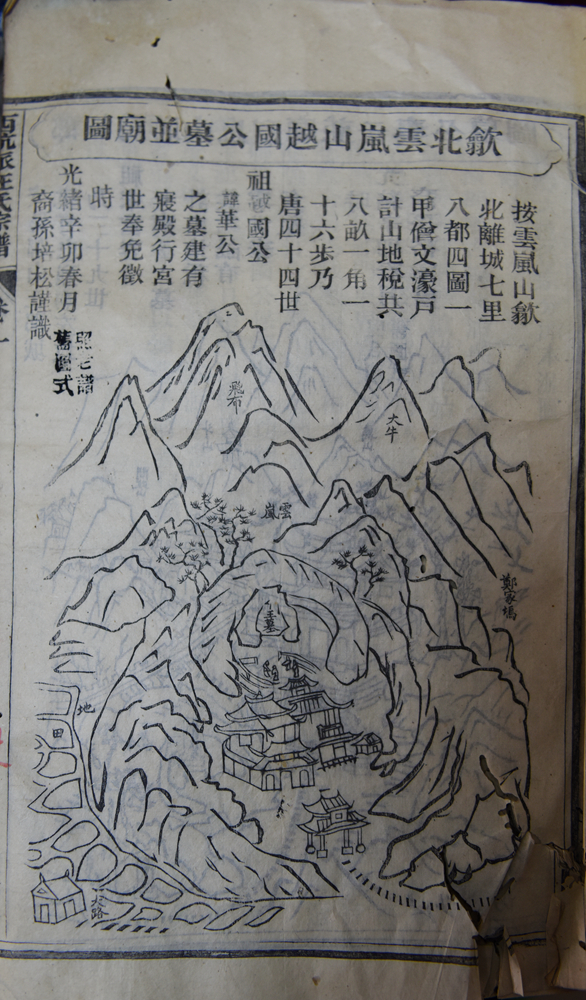 歙北雲嵐山越國公墓並廟圖
按雲嵐山歙
北離城七里
八都四圖一
甲僧文濠戸
計山地稅共
八畝一角一
十六步乃
唐四十四世
祖越國公
諱華公
之墓建有
寢殿行宮
世奉免徵
時
光緒辛卯春月
裔孫培松謹識
照老譜
舊圖式
飛布
大牛
雲嵐
鄭家塢
王墓
地
田
大路
派汪氏宗譜
卷一